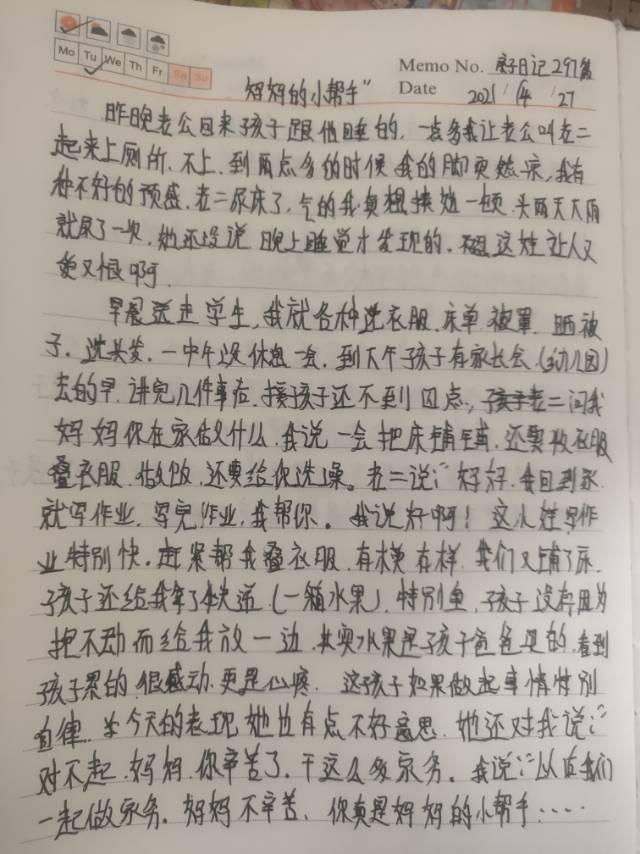 Mo Tu We Th Fr Sa Su
Memo No. 亲子日记297篇
Date 2021/4/27
妈妈的小帮手"
昨晚老公回来孩子跟他睡的,一点多我让老公叫老二
起来上厕所、不上,到两点多的时候我的脚突然凉,我有
种不好的预感,老二尿床了,气的我真想揍她一顿,头两天大雨
就尿了一次,她还没说晚上睡觉才发现的,这娃让人又
爱又恨啊
早晨送走学生,我就各种洗衣服、床单、被罩、晒被
子,洗头发,一中午没休息一会,到下午孩子有家长会(幼儿园)
去的早,讲完几件事后,接孩子还不到四点,老二问我
妈妈你在家做什么,我说一会把床铺铺,还要收衣服
叠衣服,做饭,还要给你洗澡。老二说:"好好,我回到家
就写作业,写完作业,我帮你。我说好啊!这小娃写作
业特别快,赶紧帮我叠衣服,有模有样,我们又铺了床,
子孩子还给我拿了快递(一箱水果),特别重,孩子没有因为
把不动而给我放一边,其实水果是孩子爸爸买的,看到
孩子累的,很感动,更是心疼,这孩子如果做起事情特别
自律,今天的表现她也有点不好意思,她还对我说:"
对不起,妈妈,你辛苦了,干这么多家务。我说:"以后我们
一起做家务。妈妈不辛苦、你真是妈妈的小帮手·····